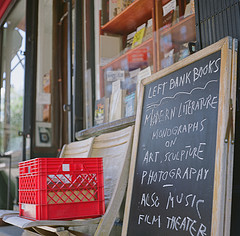 LEFT BANK BOOKS
MODERN LITERATURE
MONOGRAPHS
ON
ART, SCULPTURE
PHOTOGRAPHY
ALSO MUSIC
FILM THEATER